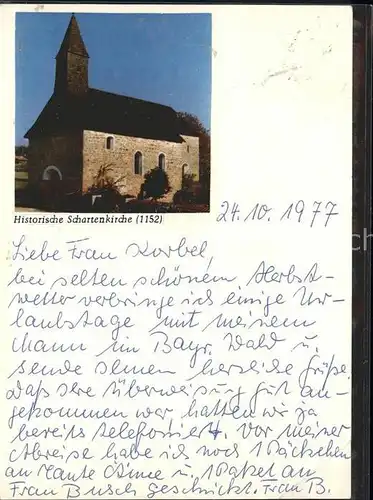 Historische Schartenkirche (1152)
24.10.1977
Liebe Frau Korbel,
bei selten schönem Herbst-
wetter verbringe ich einige Ur-
laubstage mit meinem
Mann im Bayr. Wald u.
sende Ihnen herzliche Grüße.
Daß die Überweisung gut an-
gekommen war, hatten wir ja
bereits telefoniert. Vor meiner
Abreise habe ich noch 1 Päckchen
an Tante u. 1 Paket an
Frau Busch geschickt. Frau B.